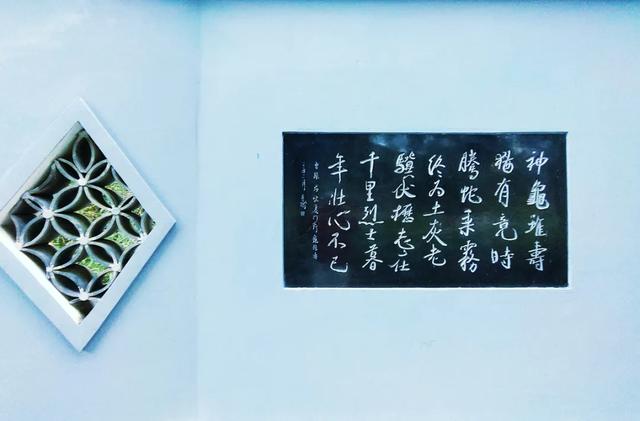 神龜雖壽
猶有竟時
騰蛇乘霧
终为土灰老
驥伏櫪志在
千里烈士暮
年壯心不已
曹操 步出夏门行 龜雖壽